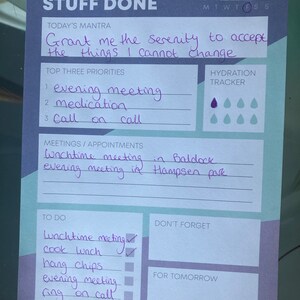 STUFF DONE
M T W T F S S
TODAY'S MANTRA
Grant me the serenity to accept
the things I cannot change
TOP THREE PRIORITIES
1 evening meeting
2 medication
3 call on call
HYDRATION
TRACKER
MEETINGS / APPOINTMENTS
lunchtime meeting in Baldock
evening meeting in Hampsen park
TO DO
lunchtime meeting
cook lunch
hang chips
evening meeting
ring on call
DON'T FORGET
FOR TOMORROW